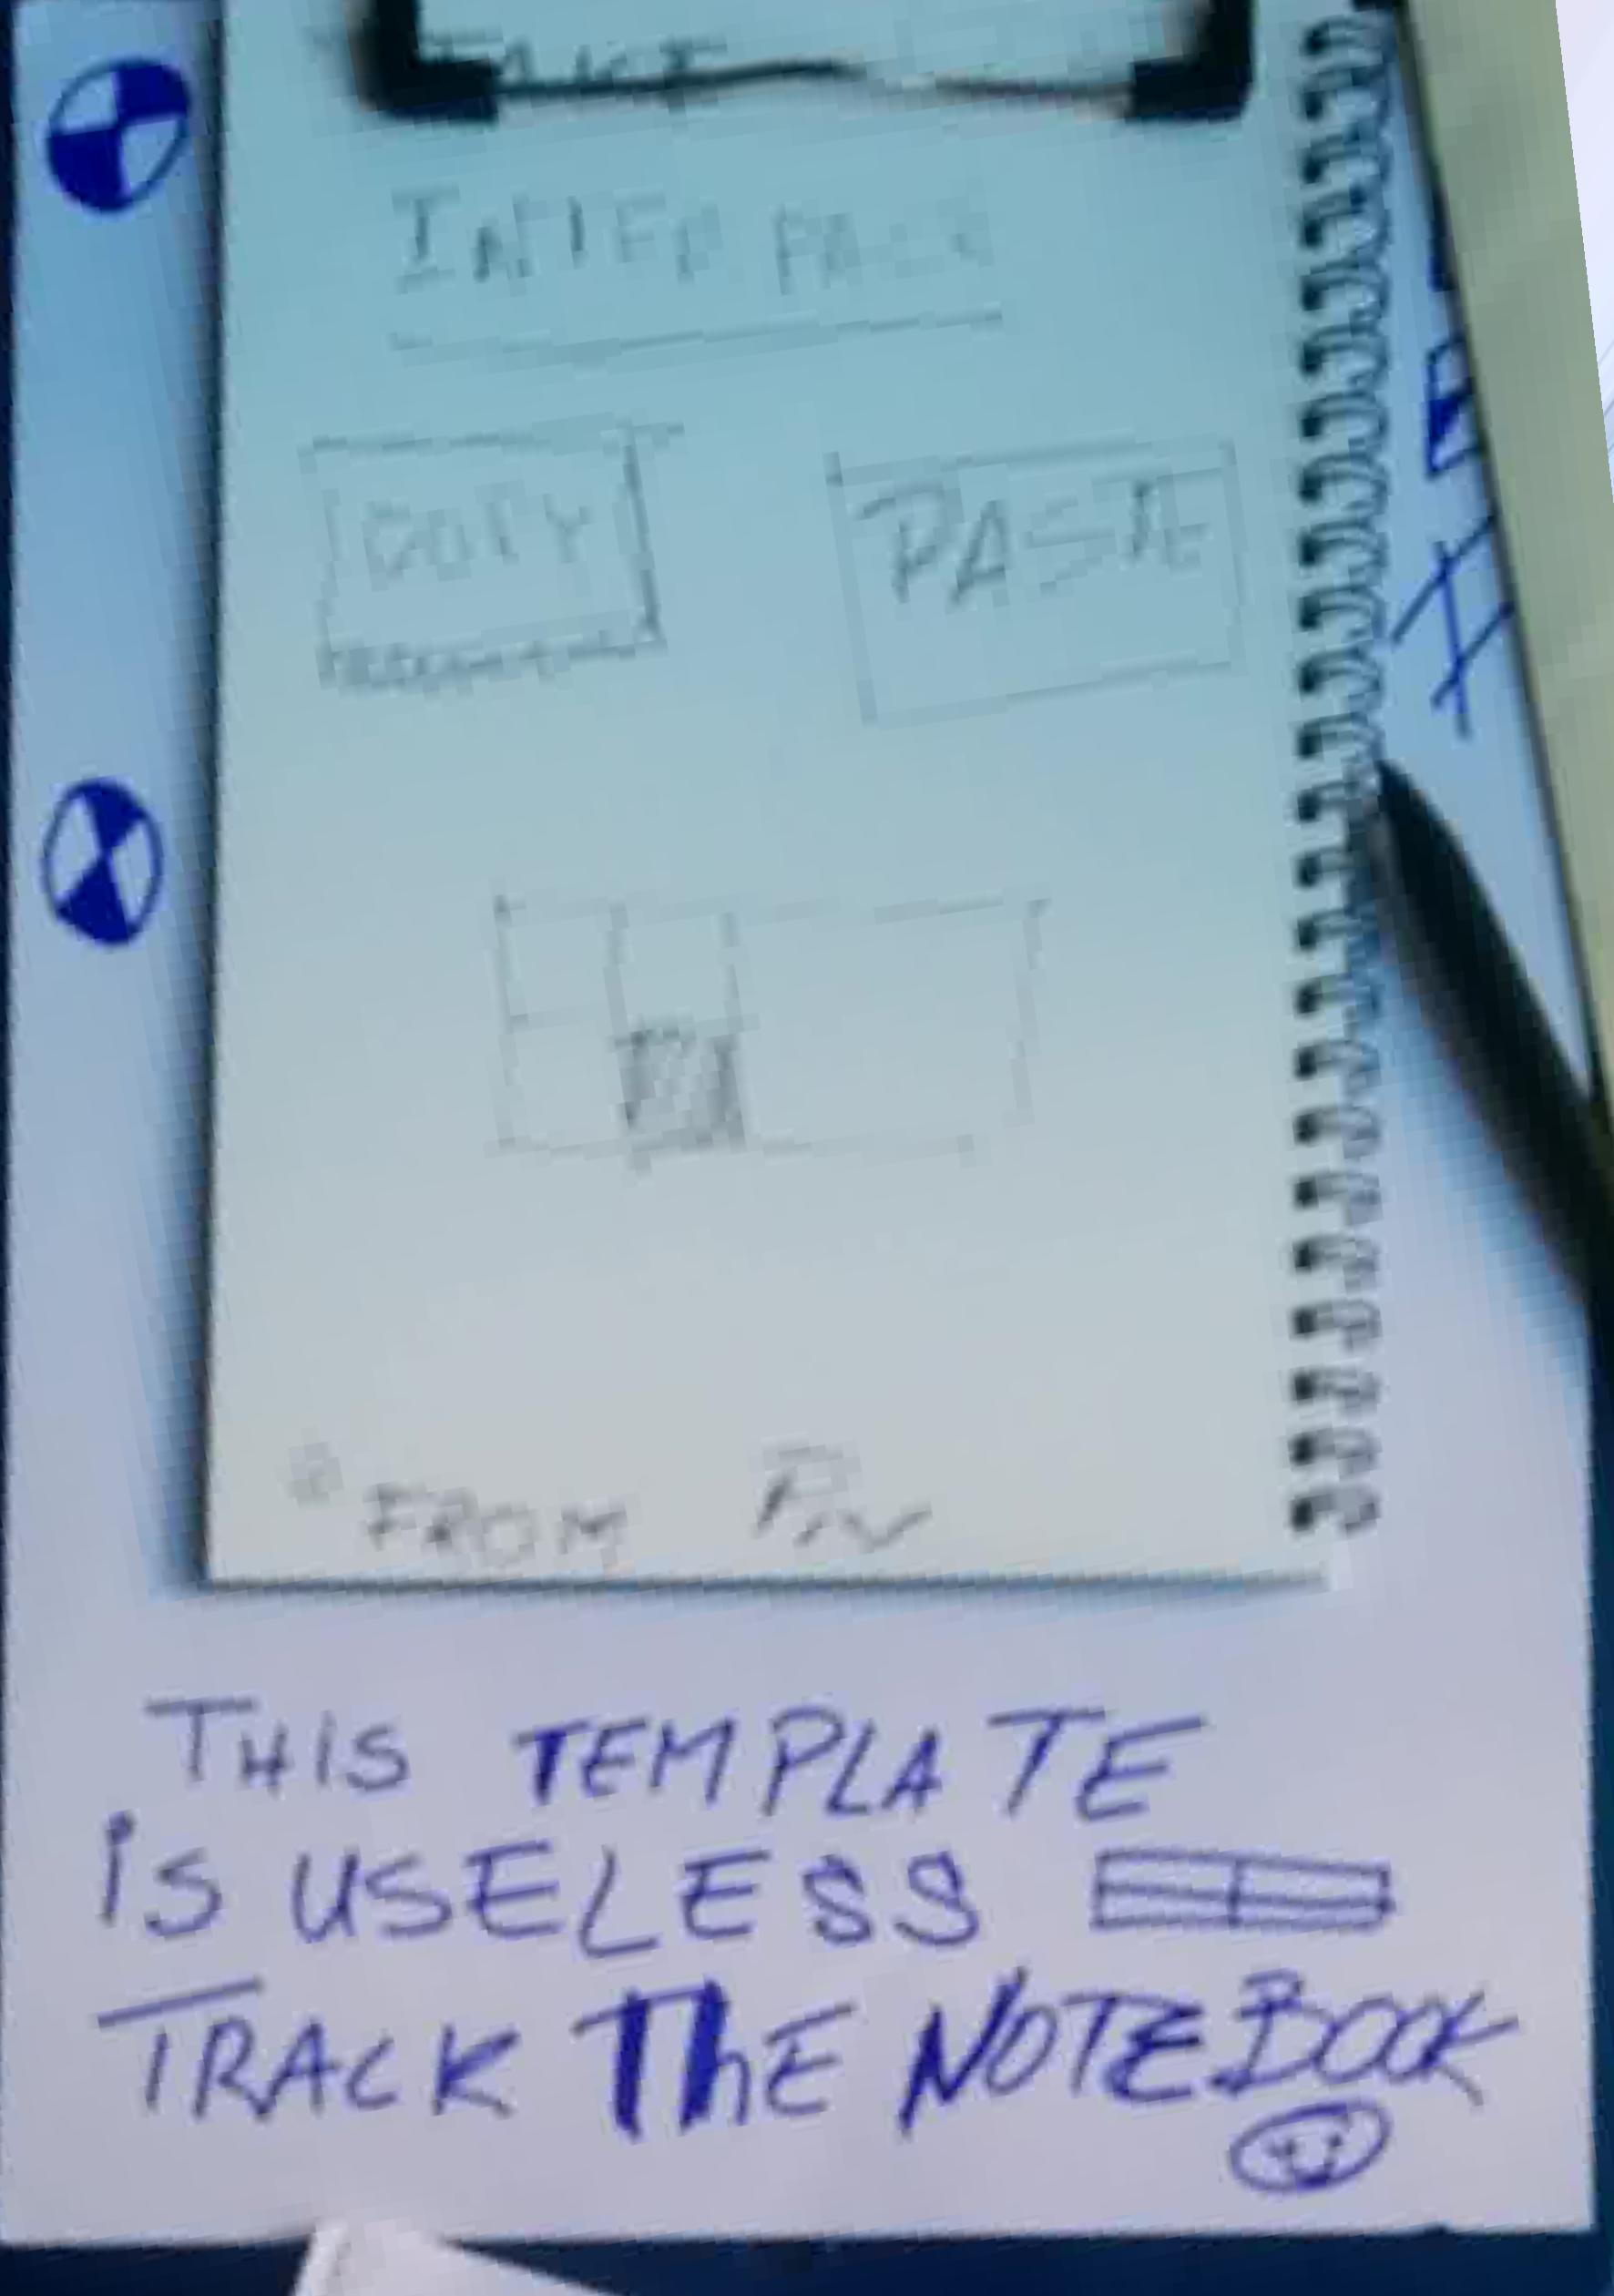 INTERFACE
COPY
PASTE
FROM
THIS TEMPLATE
iS USELESS
TRACK ThE NOTEBOOK